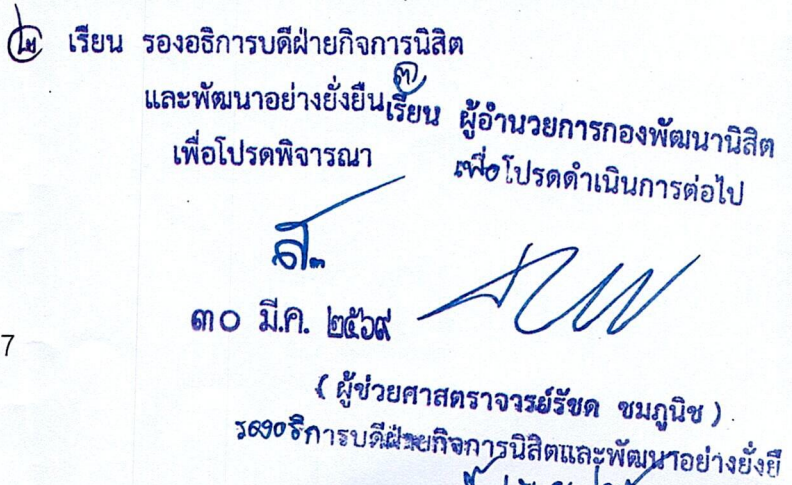 ๒ เรียน รองอธิการบดีฝ่ายกิจการนิสิต
และพัฒนาอย่างยั่งยืน
เพื่อโปรดพิจารณา
๓๐ มี.ค. ๒๕๖๙
๓
เรียน ผู้อำนวยการกองพัฒนานิสิต
เพื่อโปรดดำเนินการต่อไป
7
(ผู้ช่วยศาสตราจารย์รัชด ชมภูนิช)
รองอธิการบดีฝ่ายกิจการนิสิตและพัฒนาอย่างยั่งยื